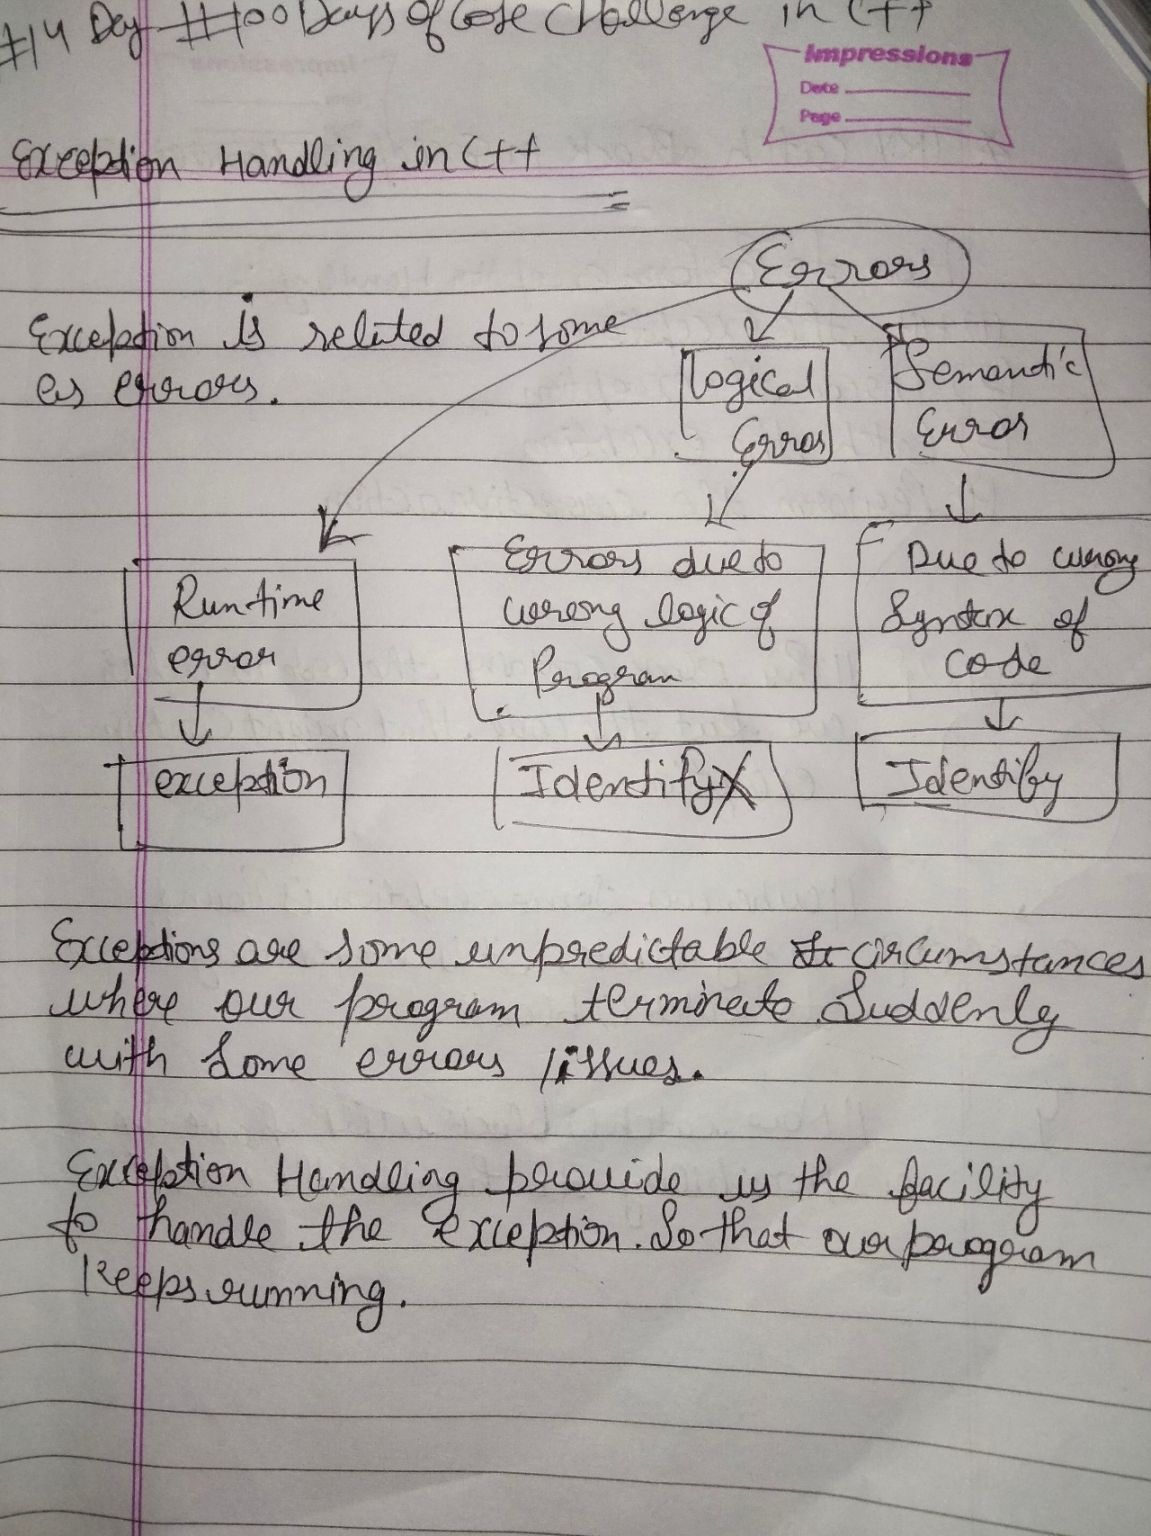 #14 Day #100 Days of Code Challenge in C++
Impressions
Date
Page
Exception Handling in C++
Errors
Exception is related to some
errors.
Logical
Error
Semantic
Error
Runtime
error
Errors due to
wrong logic of
Program
Due to wrong
Syntax of
Code
exception
Identify X
Identify
Exceptions are some unpredictable circumstances
where our program terminate Suddenly
with Some errors /issues.
Exception Handling provide us the facility
to handle the Exception. So that our program
Keeps running.